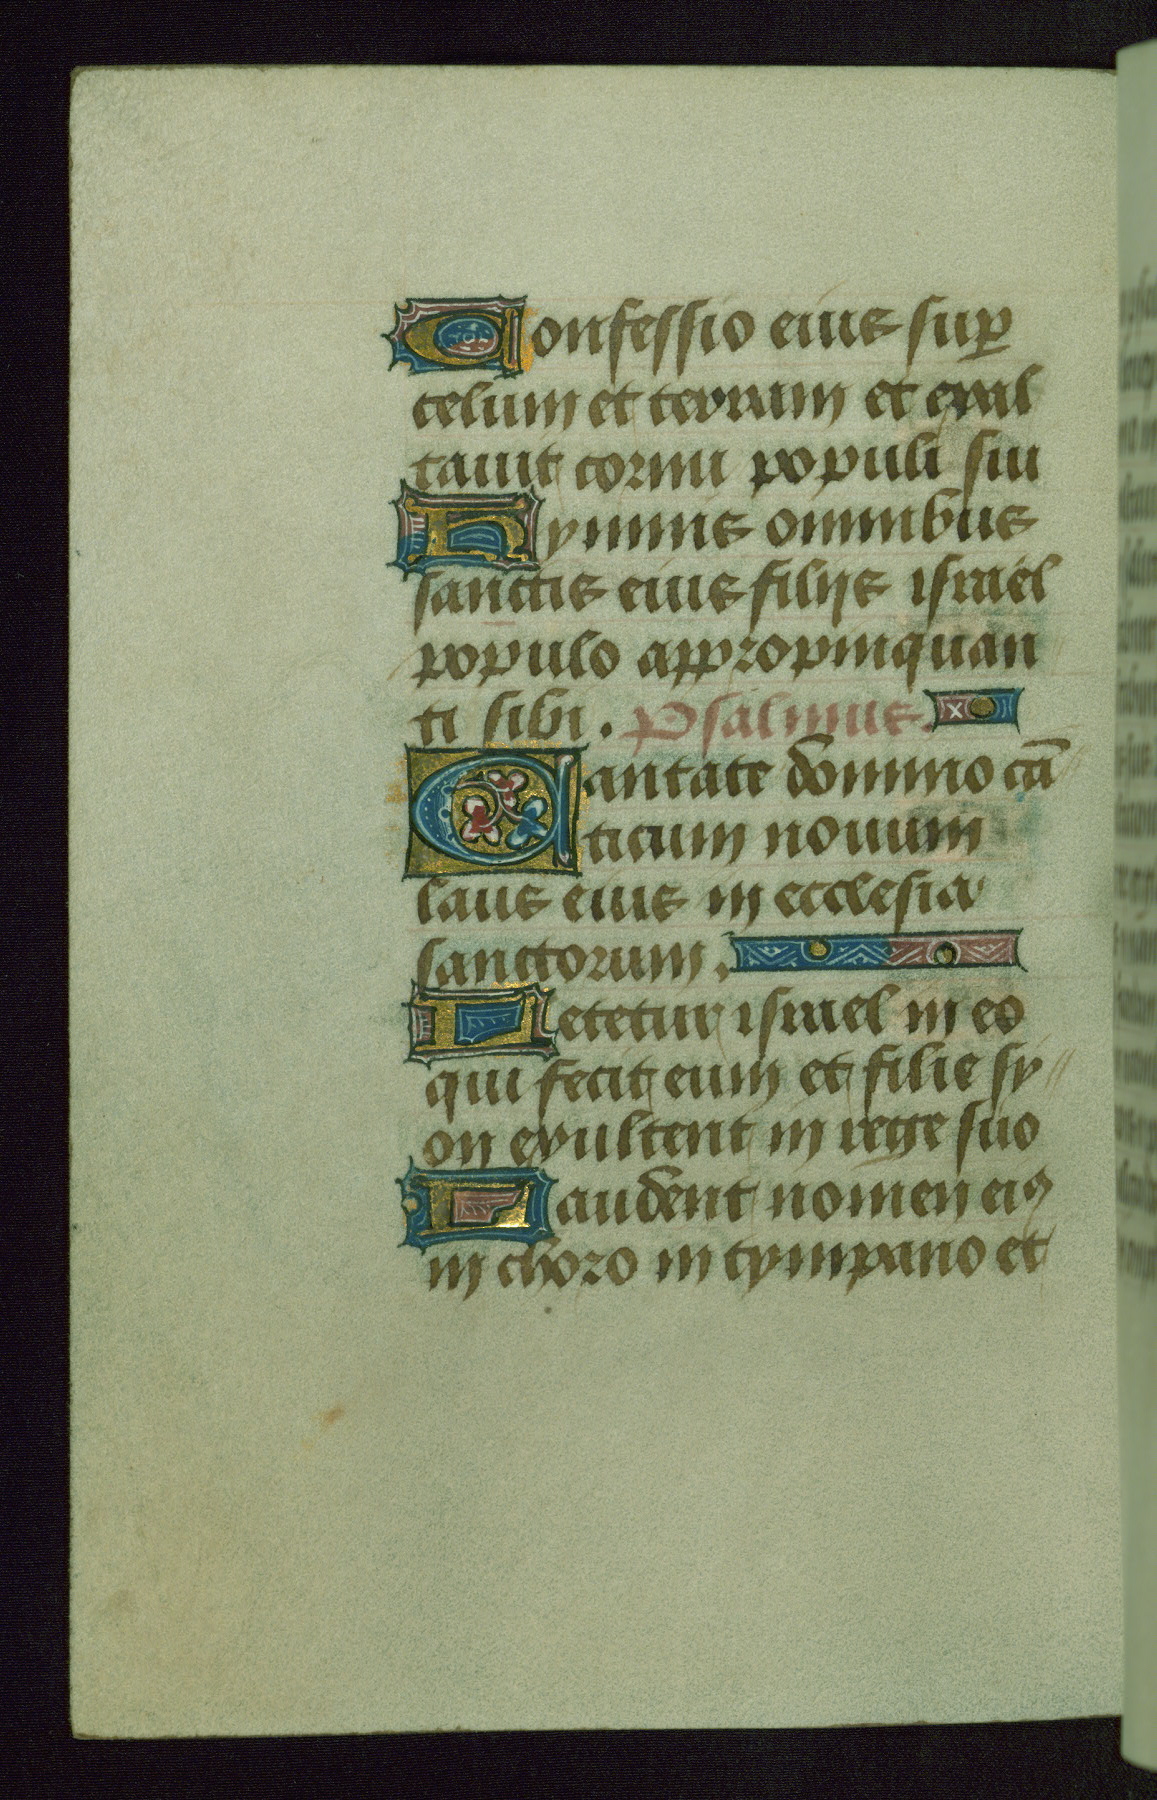 Confessio eius sup
celum et terram et exal
tauit cornu populi sui
Hymnus omnibus
sanctis eius filijs israel
populo appropinquan
ti sibi. Psalmus.
Cantate domino cā
ticum nouum
laus eius in ecclesia
sanctorum.
Letetur israel in eo
qui fecit eum et filie sy
on exultent in rege suo
Laudent nomen eiꝰ
in choro in tympano et